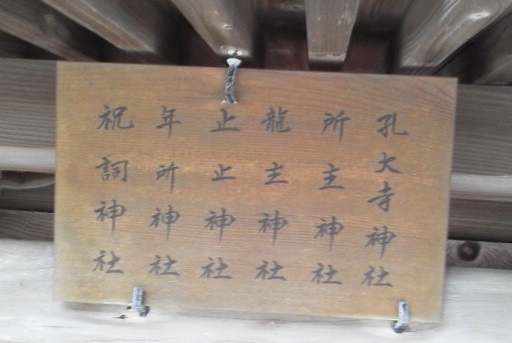 孔大寺神社
所主神社
龍主神社
止止神社
年所神社
祝詞神社